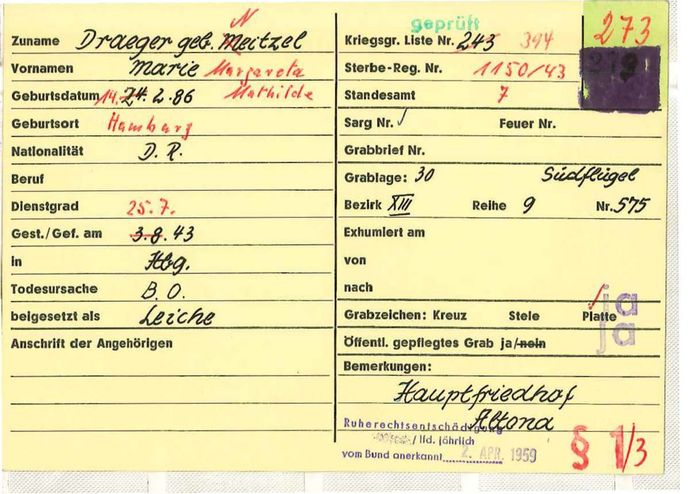 geprüft
273
219
Zuname Draeger geb. Meitzel
N
Vornamen Marie Margareta
Mathilde
Geburtsdatum 14. 24. 2. 86
Geburtsort Hamburg
Nationalität D. R.
Beruf
Dienstgrad
25.7.
Gest./Gef. am 3.8.43
in Hbg.
Todesursache B. O.
beigesetzt als Leiche
Anschrift der Angehörigen
Kriegsgr. Liste Nr. 243 394
Sterbe-Reg. Nr. 1150/43
Standesamt 7
Sarg Nr. Feuer Nr.
Grabbrief Nr.
Grablage: 30 Südflügel
Bezirk XIII Reihe 9 Nr. 575
Exhumiert am
von
nach
ja
Grabzeichen: Kreuz Stele Platte
ja
Öffentl. gepflegtes Grab ja/nein
Bemerkungen:
Hauptfriedhof
Altona
Ruherechtsentschädigung
/ lfd. jährlich
vom Bund anerkannt 2. APR. 1959
§ 1/3